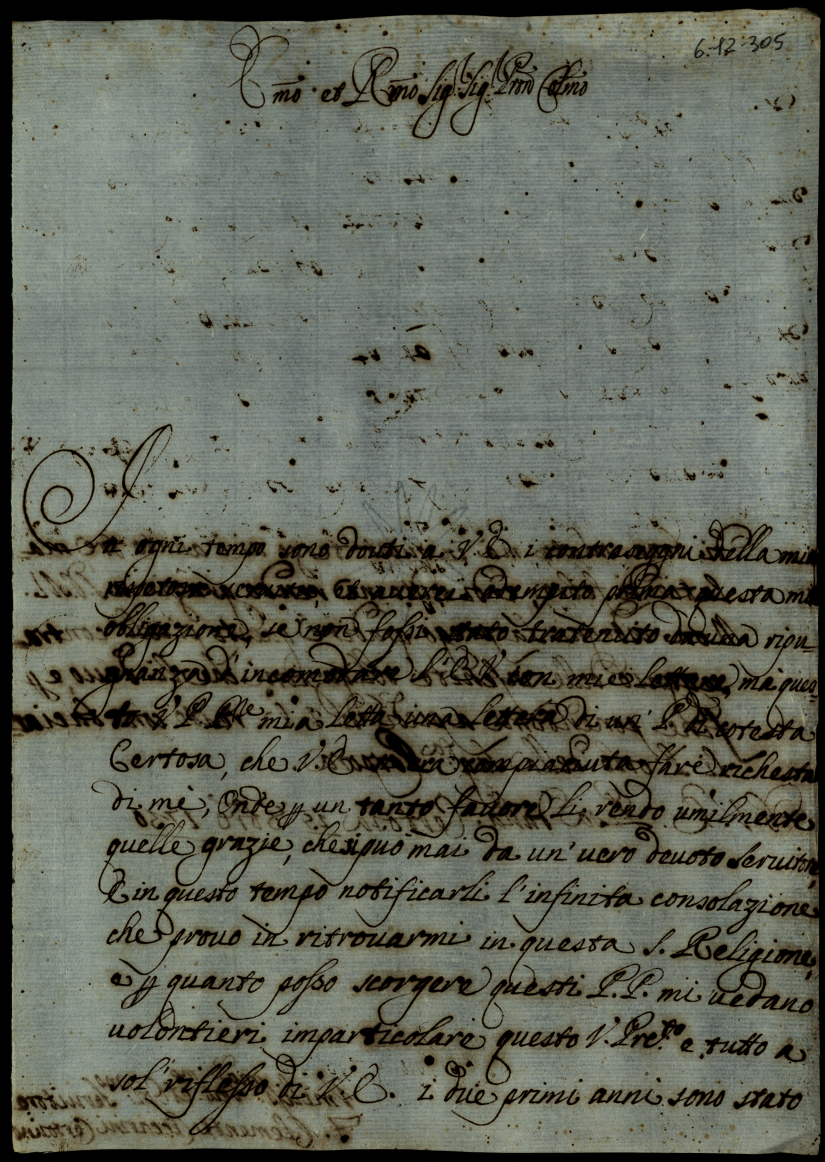 6-12-305
Emo et Rmo Sig. Sig. Pron Colmo
In ogni tempo sono douti a V. E. i contrasegni della mia
et auerei adempito prima questa mia
obligazione, se non fossi stato tratenuto da una ripu-
gnanza d'incomodare l'E. V. con mie lettere, ma ques-
to V. P. mi a letta una lettera di un' P. di cotesta
Certosa, che V. E. fare richesta
di me, Onde p un tanto fauore li rendo umilmente
quelle grazie, che si puo mai da un' uero deuoto seruitore,
E in questo tempo notificarli l'infinita consolazione
che prouo in ritrouarmi in questa S. Religione,
e p quanto posso scorgere questi P. P. mi uedano
uolontieri imparticolare questo V. Pre.to e tutto a
sol' riflesso di V. E. i due primi anni sono stato